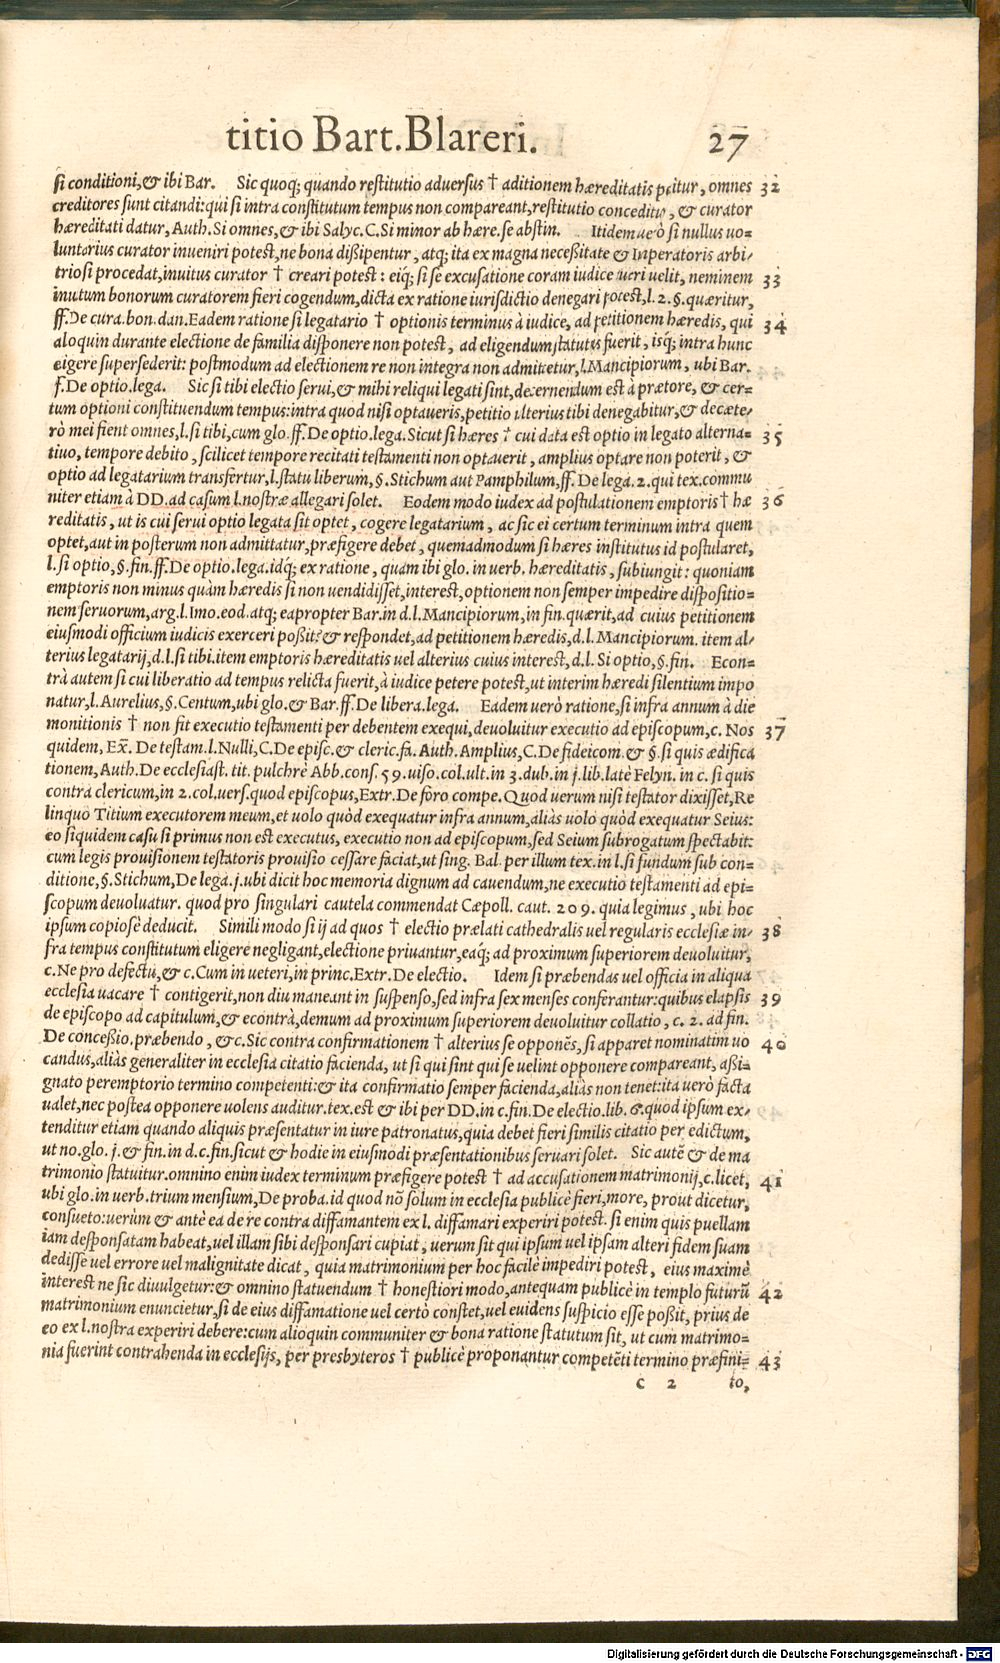 titio Bart.Blareri. 27
si conditioni,& ibi Bar. Sic quoq; quando restitutio adversus † aditionem hæreditatis petitur, omnes 32
creditores sunt citandi: qui si intra constitutum tempus non compareant, restitutio conceditur, & curator
hæreditati datur, Auth. Si omnes,& ibi Salyc. C. Si minor ab hære. se abstin. Itidem uerò si nullus uo=
luntarius curator inueniri potest, ne bona dissipentur, atq; ita ex magna necessitate & Inperatoris arbi,
trio si procedat, inuitus curator † creari potest: eiq; si se excusatione coram iudice tueri velit, neminem 33
inuitum bonorum curatorem fieri cogendum, dicta ex ratione iurisdictio denegari potest, l. 2. §. quæritur,
ff. De cura. bon. dan. Eadem ratione si legatario † optionis terminus à iudice, ad petitionem hæredis, qui 34
aloquin durante electione de familia disponere non potest, ad eligendum statutus fuerit, isq; intra hunc
eigere supersederit: postmodum ad electionem re non integra non admittetur, l. Mancipiorum, ubi Bar.
f. De optio. lega. Sic si tibi electio serui,& mihi reliqui legati sint, decernendum est à prætore, & cer=
tum optioni constituendum tempus: intra quod nisi optaueris, petitio ulterius tibi denegabitur,& decæte,
rò mei fient omnes, l. si tibi, cum glo. ff. De optio. lega. Sicut si hæres † cui data est optio in legato alterna= 35
tiuo, tempore debito, scilicet tempore recitati testamenti non optauerit, amplius optare non poterit, &
optio ad legatarium transfertur, l. statu liberum, §. Stichum aut Pamphilum, ff. De lega. 2. qui tex. commu
niter etiam à DD. ad casum l. nostræ allegari solet. Eodem modo iudex ad postulationem emptoris † hæ 36
reditatis, ut is cui serui optio legata sit optet, cogere legatarium, ac sic ei certum terminum intra quem
optet, aut in posterum non admittatur, præfigere debet, quemadmodum si hæres institutus id postularet,
l. si optio, §. fin. ff. De optio. lega. idq; ex ratione, quam ibi glo. in verb. hæreditatis, subiungit: quoniam
emptoris non minus quàm hæredis si non uendidisset, interest, optionem non semper impedire dispositio=
nem seruorum, arg. l. Imo. eod. atq; eapropter Bar. in d. l. Mancipiorum, in fin. quærit, ad cuius petitionem
eiusmodi officium iudicis exerceri possit? & respondet, ad petitionem hæredis, d. l. Mancipiorum. item al,
terius legatarij, d. l. si tibi. item emptoris hæreditatis uel alterius cuius interest, d. l. Si optio, §. fin. Econ=
trà autem si cui liberatio ad tempus relicta fuerit, à iudice petere potest, ut interim hæredi silentium impo
natur, l. Aurelius, §. Centum, ubi glo. & Bar. ff. De libera. lega. Eadem uerò ratione, si infra annum à die
monitionis † non fit executio testamenti per debentem exequi, deuoluitur executio ad episcopum, c. Nos 37
quidem, Ex̃. De testam. l. Nulli, C. De episc. & cleric. fa. Auth. Amplius, C. De fideicom. & §. si quis ædifica
tionem, Auth. De ecclesiast. tit. pulchrè Abb. cons. 59. uiso. col. ult. in 3. dub. in j. lib. latè Felyn. in c. si quis
contra clericum, in 2. col. uers. quod episcopus, Extr. De foro compe. Quod uerum nisi testator dixisset, Re
linquo Titium executorem meum, et uolo quòd exequatur infra annum, aliàs uolo quòd exequatur Seius:
eo siquidem casu si primus non est executus, executio non ad episcopum, sed Seium subrogatum spectabit:
cum legis prouisionem testatoris prouisio cessare faciat, ut sing. Bal. per illum tex. in l. si fundum sub con=
ditione, §. Stichum, De lega. j. ubi dicit hoc memoria dignum ad cauendum, ne executio testamenti ad epi=
scopum deuoluatur. quod pro singulari cautela commendat Cæpoll. caut. 209. quia legimus, ubi hoc
ipsum copiosè deducit. Simili modo si ij ad quos † electio prælati cathedralis uel regularis ecclesiæ in, 38
fra tempus constitutum eligere negligant, electione priuantur, eaq; ad proximum superiorem deuoluitur,
c. Ne pro defectu, & c. Cum in ueteri, in princ. Extr. De electio. Idem si præbendas uel officia in aliqua
ecclesia uacare † contigerit, non diu maneant in suspenso, sed infra sex menses conferantur: quibus elapsis 39
de episcopo ad capitulum, & econtrà, demum ad proximum superiorem deuoluitur collatio, c. 2. ad fin.
De concessio. præbendo, & c. Sic contra confirmationem † alterius se opponẽs, si apparet nominatim uo 40
candus, aliàs generaliter in ecclesia citatio facienda, ut si qui sint qui se uelint opponere compareant, assi=
gnato peremptorio termino competenti: & ita confirmatio semper facienda, aliàs non tenet: ita uerò facta
ualet, nec postea opponere uolens auditur. tex. est & ibi per DD. in c. fin. De electio. lib. 6. quod ipsum ex,
tenditur etiam quando aliquis præsentatur in iure patronatus, quia debet fieri similis citatio per edictum,
ut no. glo. j. & fin. in d. c. fin. sicut & hodie in eiusmodi præsentationibus seruari solet. Sic autẽ & de ma
trimonio statuitur. omnino enim iudex terminum præfigere potest † ad accusationem matrimonij, c. licet, 41
ubi glo. in uerb. trium mensium, De proba. id quod nõ solum in ecclesia publicè fieri, more, prout dicetur,
consueto: uerùm & antè ea de re contra diffamantem ex l. diffamari experiri potest. si enim quis puellam
iam desponsatam habeat, uel illam sibi desponsari cupiat, uerum sit qui ipsum uel ipsam alteri fidem suam
dedisse uel errore uel malignitate dicat, quia matrimonium per hoc facilè impediri potest, eius maximè
interest ne sic diuulgetur: & omnino statuendum † honestiori modo, antequam publicè in templo futurũ 42
matrimonium enuncietur, si de eius diffamatione uel certò constet, uel euidens suspicio esse possit, prius de
eo ex l. nostra experiri debere: cum alioquin communiter & bona ratione statutum sit, ut cum matrimo=
nia fuerint contrahenda in ecclesijs, per presbyteros † publicè proponantur competẽti termino præfini= 43
c 2 to,
Digitalisierung gefördert durch die Deutsche Forschungsgemeinschaft - DFG